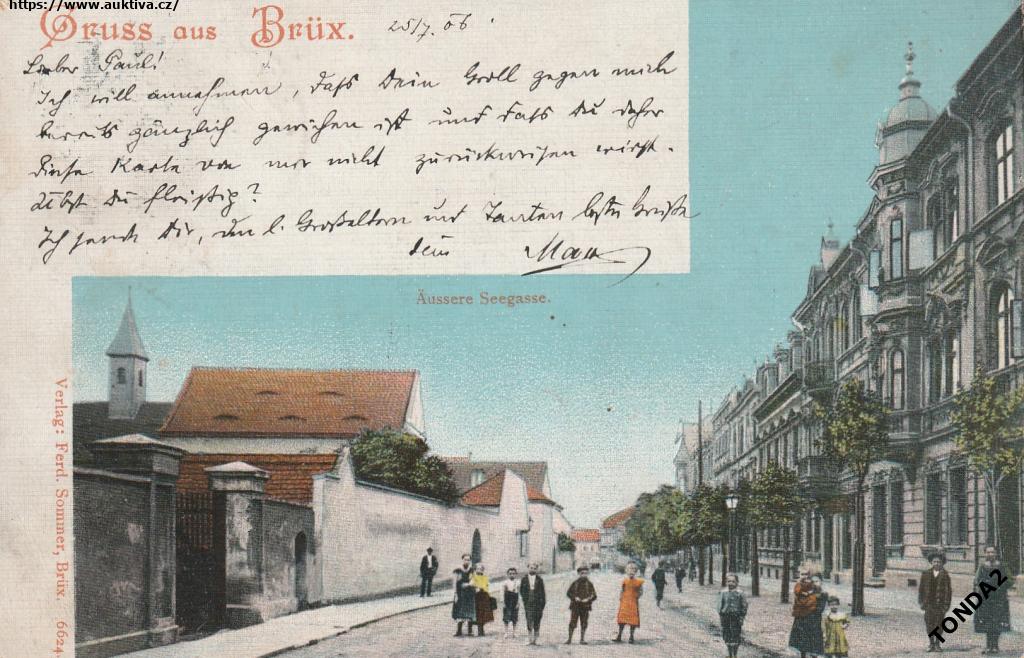 https://www.auktiva.cz/
Gruss aus Brüx.
25/7. 06
Lieber Paul!
Ich will annehmen, dass Dein Groll gegen mich
bereits gänzlich gewichen ist und dass Du daher
diese Karte von mir nicht zurückweisen wirst.
Übst Du fleißig?
Ich sende Dir, den l. Großeltern und Tanten beste Grüße
dein
Äussere Seegasse.
Verlag: Ferd. Sommer, Brüx. 6624.
TONDA2